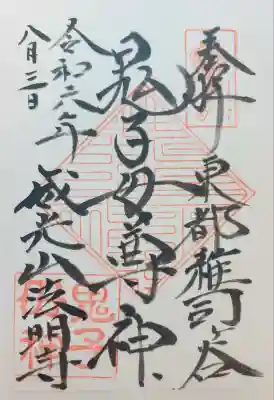 奉拝
東都雑司ヶ谷
鬼子母尊神
威光山法明寺
令和六年
八月三日
鬼子
母神